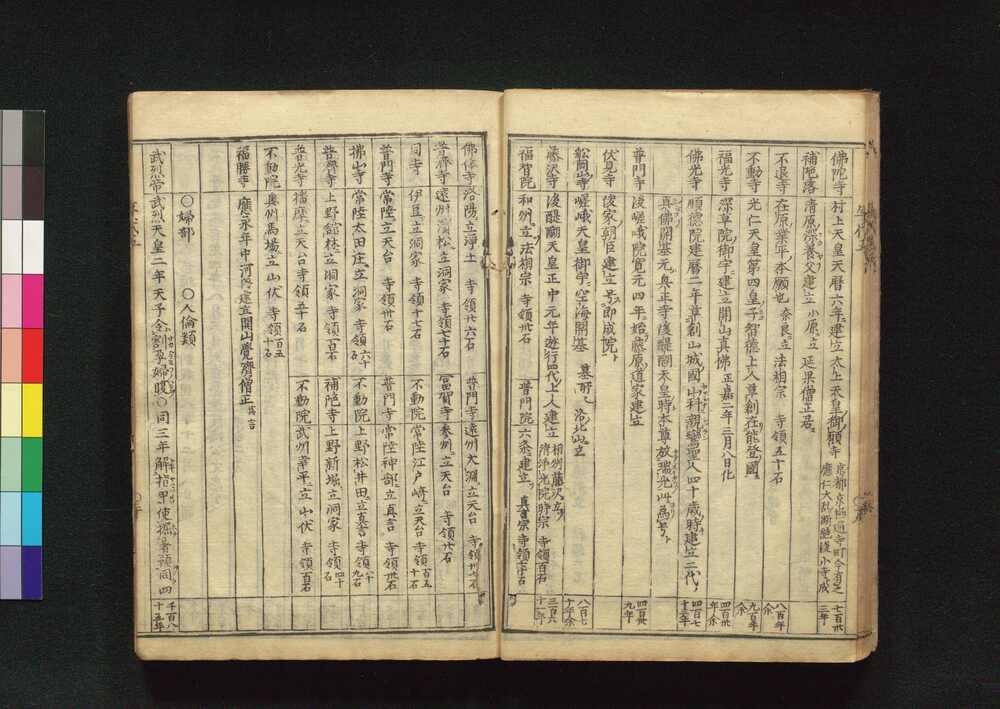 佛陀寺 村上天皇天暦六年建立太上天皇御願寺 京都京極通寺町今有之 應仁大乱断絶後小寺成 七百卅三年
補陀落 清原深養父建立 小原立 延杲僧正居
不退寺 在原業平本願也 奈良立 法相宗 寺領五十石 八百年余
不動寺 光仁天皇第四皇子智德上人草創在能登國 九百年余
福光寺 深草院御宇建立開山真佛 正嘉二年三月八日化 四百卅年余
佛光寺 順德院建暦二年草創山城國山科親鸞聖人四十歳時建立二代 四百七十三年
真佛開基元興正寺後醍醐天皇時本尊放瑞光此為号
普門寺 後嵯峨院寛元四年始藤原道家建立 四百卅九年
伏見寺 俊家朝臣建立号即成院
舩岡山寺 嵯峨天皇御宇空海開基 墓所 洛北山立 八百七十年余
藤沢寺 後醍醐天皇正中元年遊行四代上人建立 相州藤沢在 清浄光院時宗 寺領百石 三百六十一年
福智院 和州立 法相宗 寺領卅石 普門院 六条建立 真言宗 寺領十石
佛陀寺 洛陽立浄土 寺領廿六石 普門寺 遠州大渕立天台 寺領卅七石
普濟寺 遠州濱松立洞家 寺領七十石 冨賀寺 参州立天台 寺領廿石
同寺 伊豆立洞家 寺領十七石 不動院 常陸江戸崎立天台 寺領百五十石
普門寺 常陸立天台 寺領卅石 普門寺 常陸神郡立真言 寺領卅石
拂山寺 常陸太田庄立洞家 寺領六十石 不動院 上野松井田立真言 寺領八十九石
普濟寺 上野舘林立洞家 寺領百石 補陀寺 上野新堀立洞家 寺領四十石
普光寺 播磨立天台 寺領五十石 不動院 武州幸平立山伏 寺領百石
不動院 奥州馬場立山伏 寺領百五十石
福勝寺 應永年中河内建立開山覺齊僧正 真言
○婦部 ○人倫類
武烈帝 武烈天皇二年天子令割孕婦腹○同三年解指甲使掘暑預同四 千百八十五年